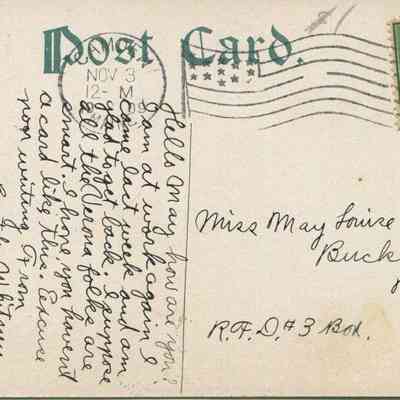 Post Card.
NOV 3
12-M
Hello May how are you?
I am at work again I
came last week and am
glad to get back. I suppose
all the Verona folks are
smart. I hope you havent
a card like this. Excuse
poor writing. From
Miss May Louise
Buck
R.F.D. #3 Box.